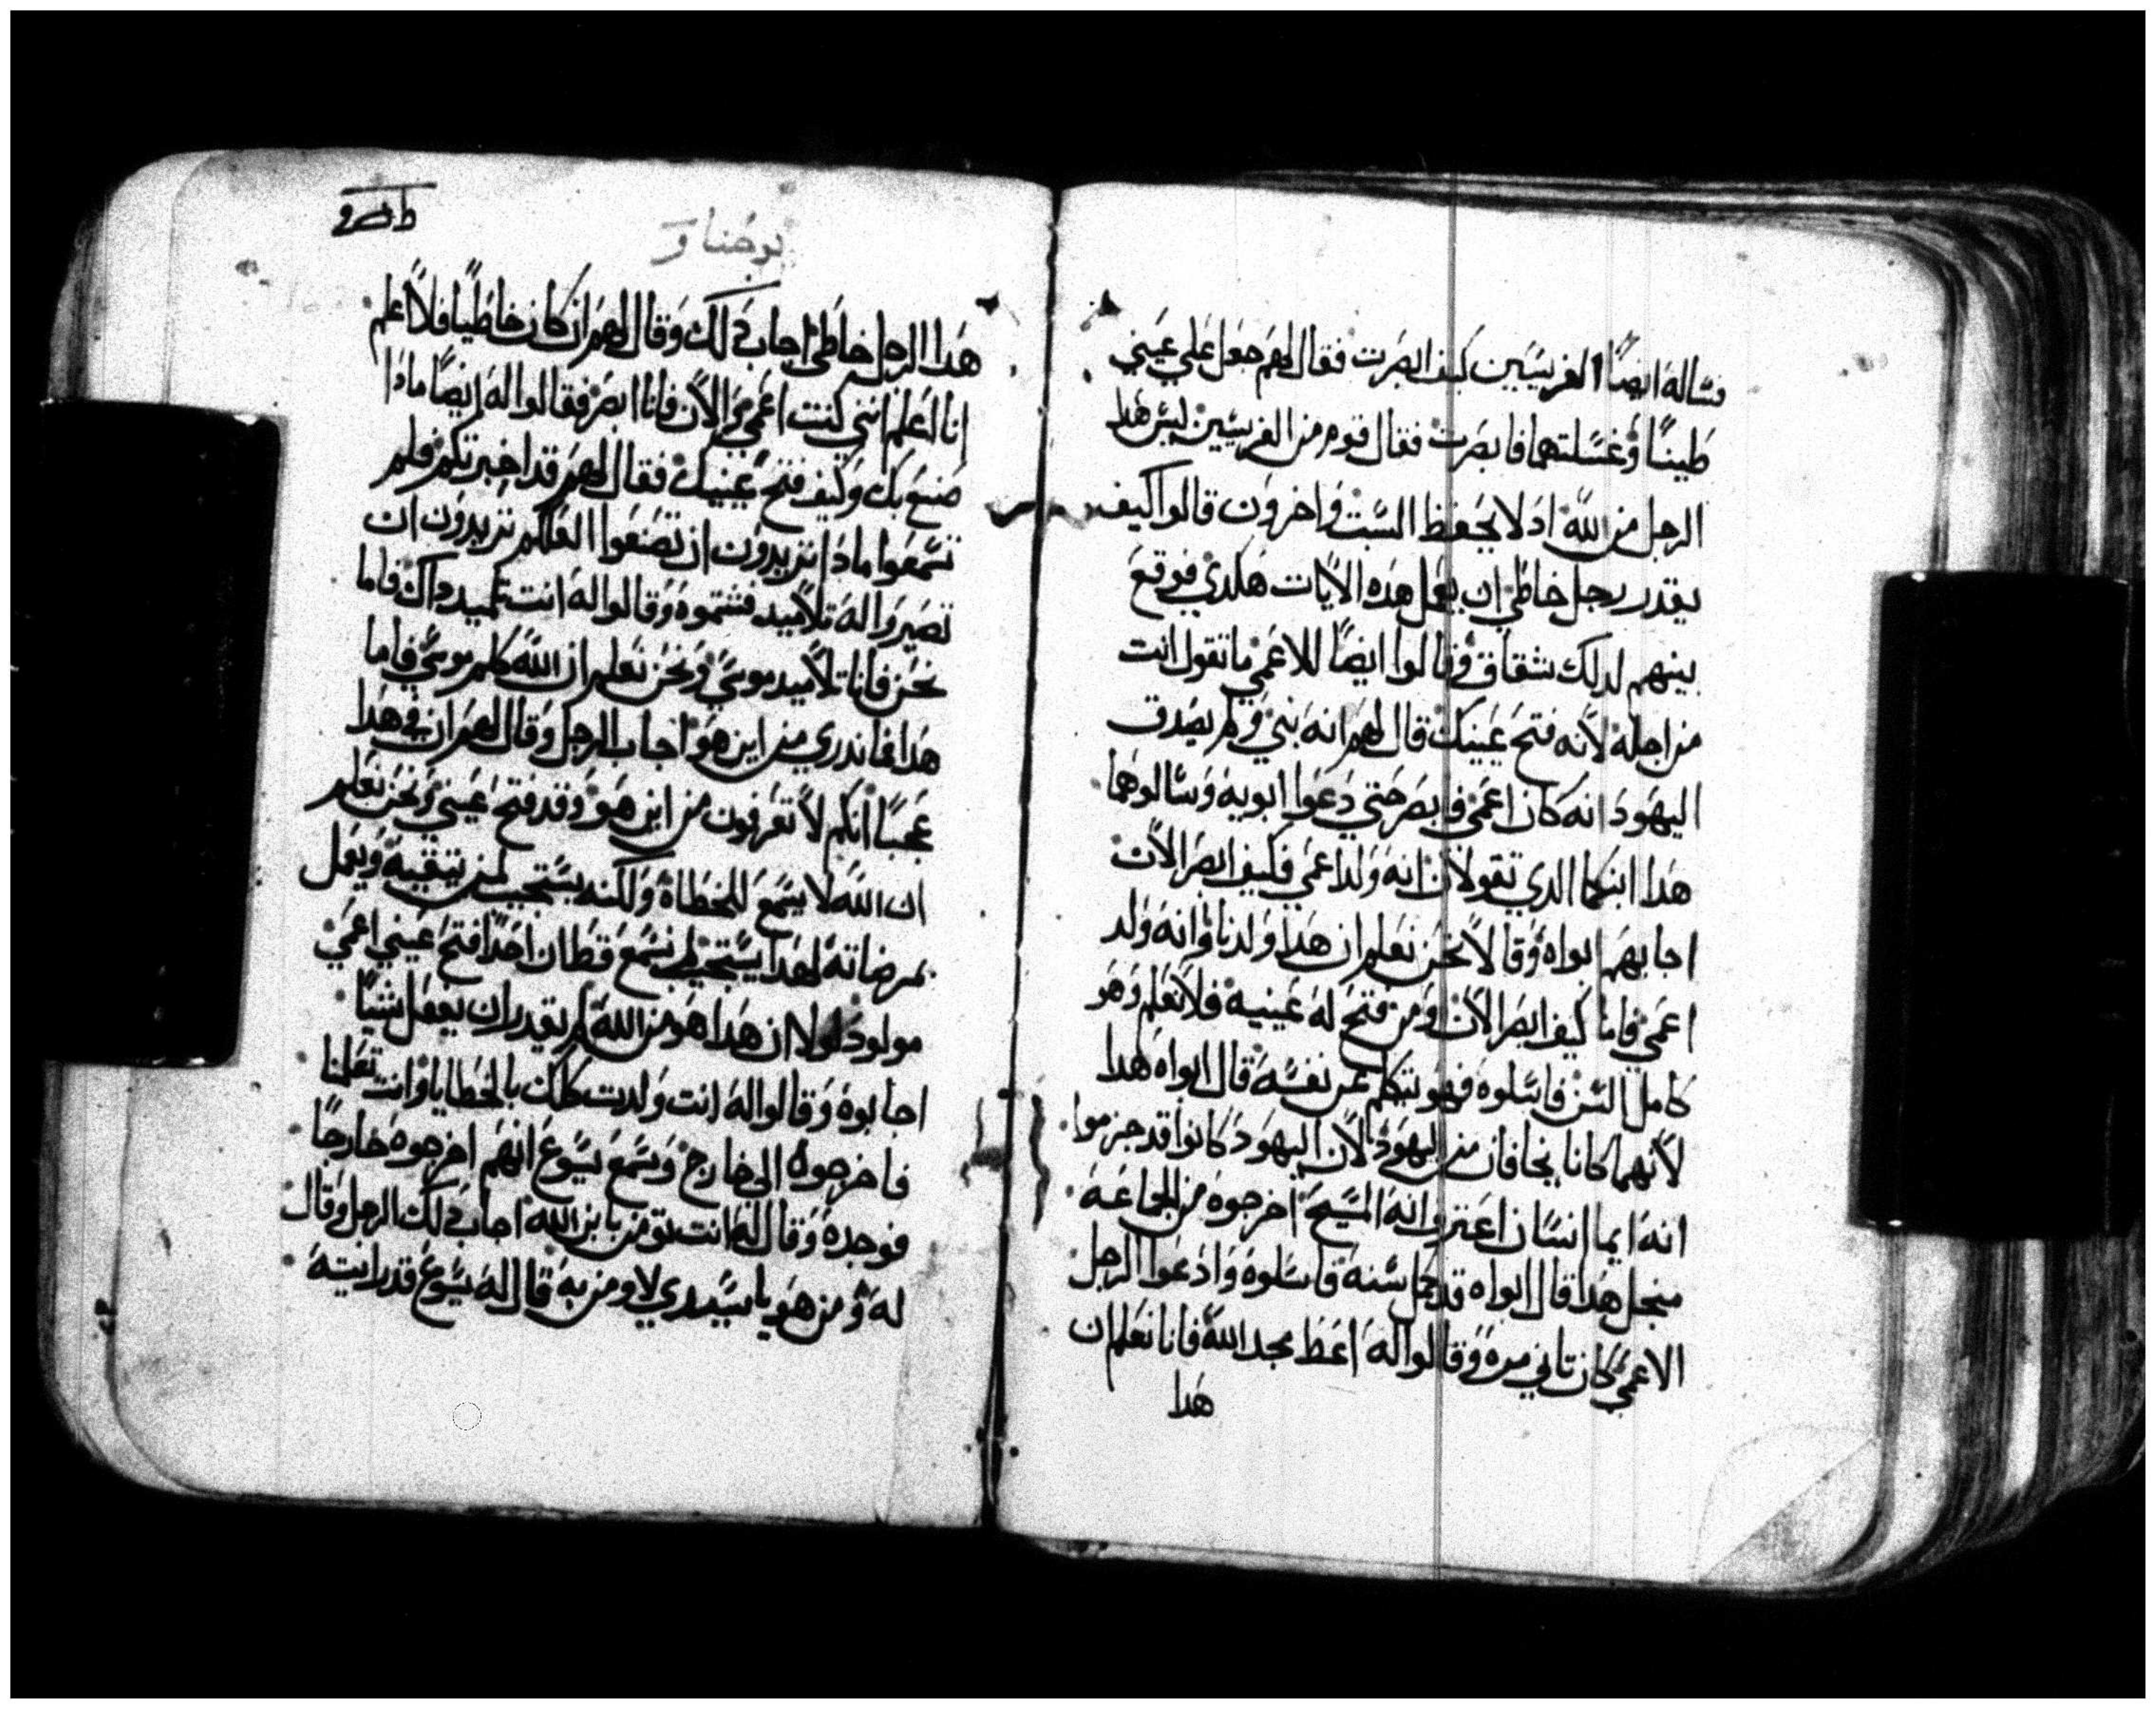 فساله ايضًا الفريسيين كيف ابصرت فقال لهم جعل على عيني
طينًا وغسلتهما فابصرت فقال قوم من الفريسيين ليس هدا
الرجل من الله اد لا يحفظ السبت واخرون قالوا كيف
يقدر رجل خاطي ان يعمل هده الايات هكدي فوقع
بينهم لدلك شقاق وقالوا ايضًا للاعمي ما تقول انت
من اجله لانه فتح عينيك قال لهم انه نبي ولم يصدق
اليهود انه كان اعمي فابصر حتي دعوا ابويه وسالوهما
هدا ابنكما الدي تقولان انه ولد اعمي فكيف ابصر الان
اجابهم ابواه وقالا نحن نعلم ان هدا ولدنا وانه ولد
اعمي فاما كيف ابصر الان ومن فتح له عينيه فلا نعلم وهو
كامل السن فاسلوه فهو يتكلم عن نفسه قال ابواه هدا
لانهما كانا يخافان من اليهود لان اليهود كانوا قد جزموا
انه ايما انسان اعترف انه المسيح اخرجوه من الجماعة
منجل هدا قال ابواه قد كمل سنه فاسلوه وادعوا الرجل
الاعمي كان تاني مره وقالوا له اعط مجد الله فانا نعلم ان
هدا
يوحنا
هدا الرجل خاطي اجاب دلك وقال لهم ان كان خاطيًا فلا اعلم
انا اعلم انني كنت اعمي والان فانا ابصر فقالوا له ايضًا مادا
صنع بك وكيف فتح عينيك فقال لهم قد اخبرتكم فلم
تسمعوا مادا تريدون ان تصنعوا العلكم تريدون ان
تصيروا له تلاميد فشتموه وقالوا له انت تلميد داك فاما
نحن فانا تلاميد موسي ونحن نعلم ان الله كلم موسي فاما
هدا فما ندري من اين هو اجاب الرجل وقال لهم ان في هدا
عجبًا انكم لا تعرفون من اين هو وقد فتح عيني ونحن نعلم
ان الله لا يسمع للخطاة ولكنه يستجيب لمن يتقيه ويعمل
بمرضاته لهدا يستجيب لم نسمع قط ان احدًا فتح عيني اعمي
مولود لولا ان هدا هو من الله لم يقدر ان يفعل شيًا
اجابوه وقالوا له انت ولدت كلك بالخطايا وانت تعلمنا
فاخرجوه الي خارج وسمع يسوع انهم اخرجوه خارجًا
فوجده وقال له انت تومن بابن الله اجاب دلك الرجل وقال
له ومن هو يا سيدي لاومن به قال له يسوع قد رايته